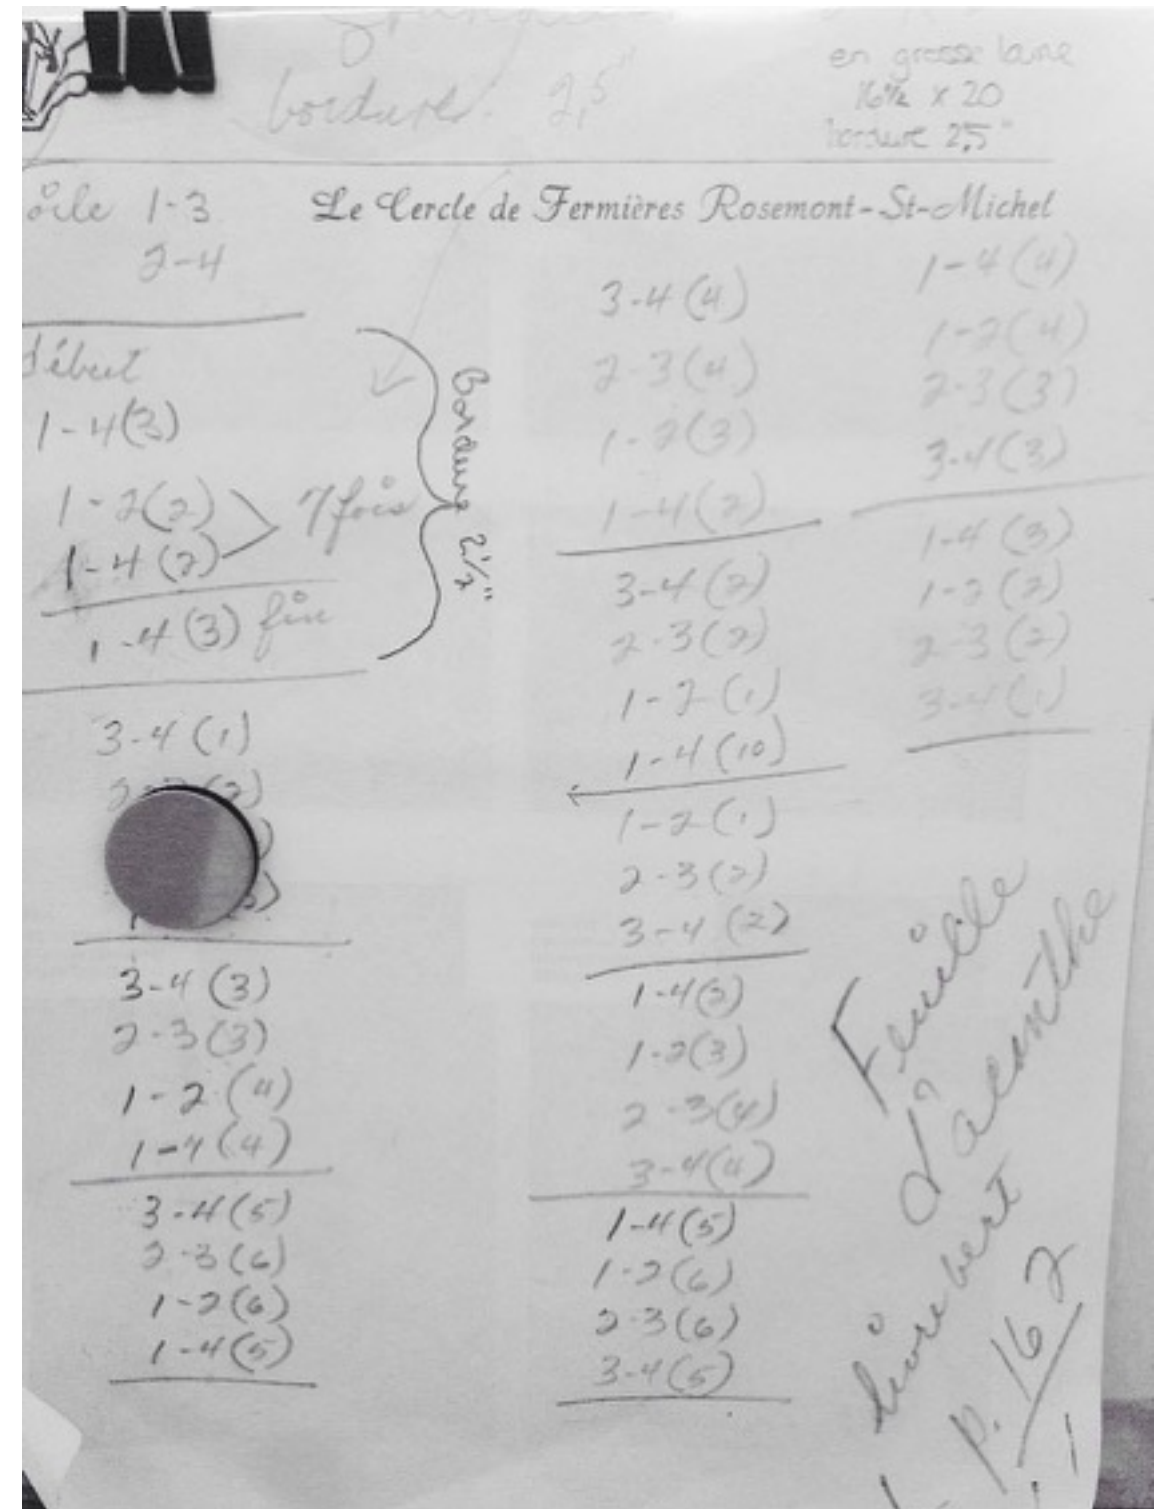 bordure 2,5"
en grosse laine
16½ x 20
bordure 2,5"
Le Cercle de Fermières Rosemont-St-Michel
1-3
2-4
début
1-4(3)
1-2(2)
1-4(2)
7 fois
1-4(3) fin
Bordure 2½"
3-4(1)
3-4(3)
2-3(3)
1-2(4)
1-4(4)
3-4(5)
2-3(6)
1-2(6)
1-4(5)
3-4(4)
2-3(4)
1-2(3)
1-4(2)
3-4(2)
2-3(2)
1-2(1)
1-4(10)
1-2(1)
2-3(2)
3-4(2)
1-4(3)
1-2(3)
2-3(4)
3-4(4)
1-4(5)
1-2(6)
2-3(6)
3-4(5)
1-4(4)
1-2(4)
2-3(3)
3-4(3)
1-4(3)
1-2(2)
2-3(2)
3-4(1)
Feuille
d'acanthe
livre vert
p. 162